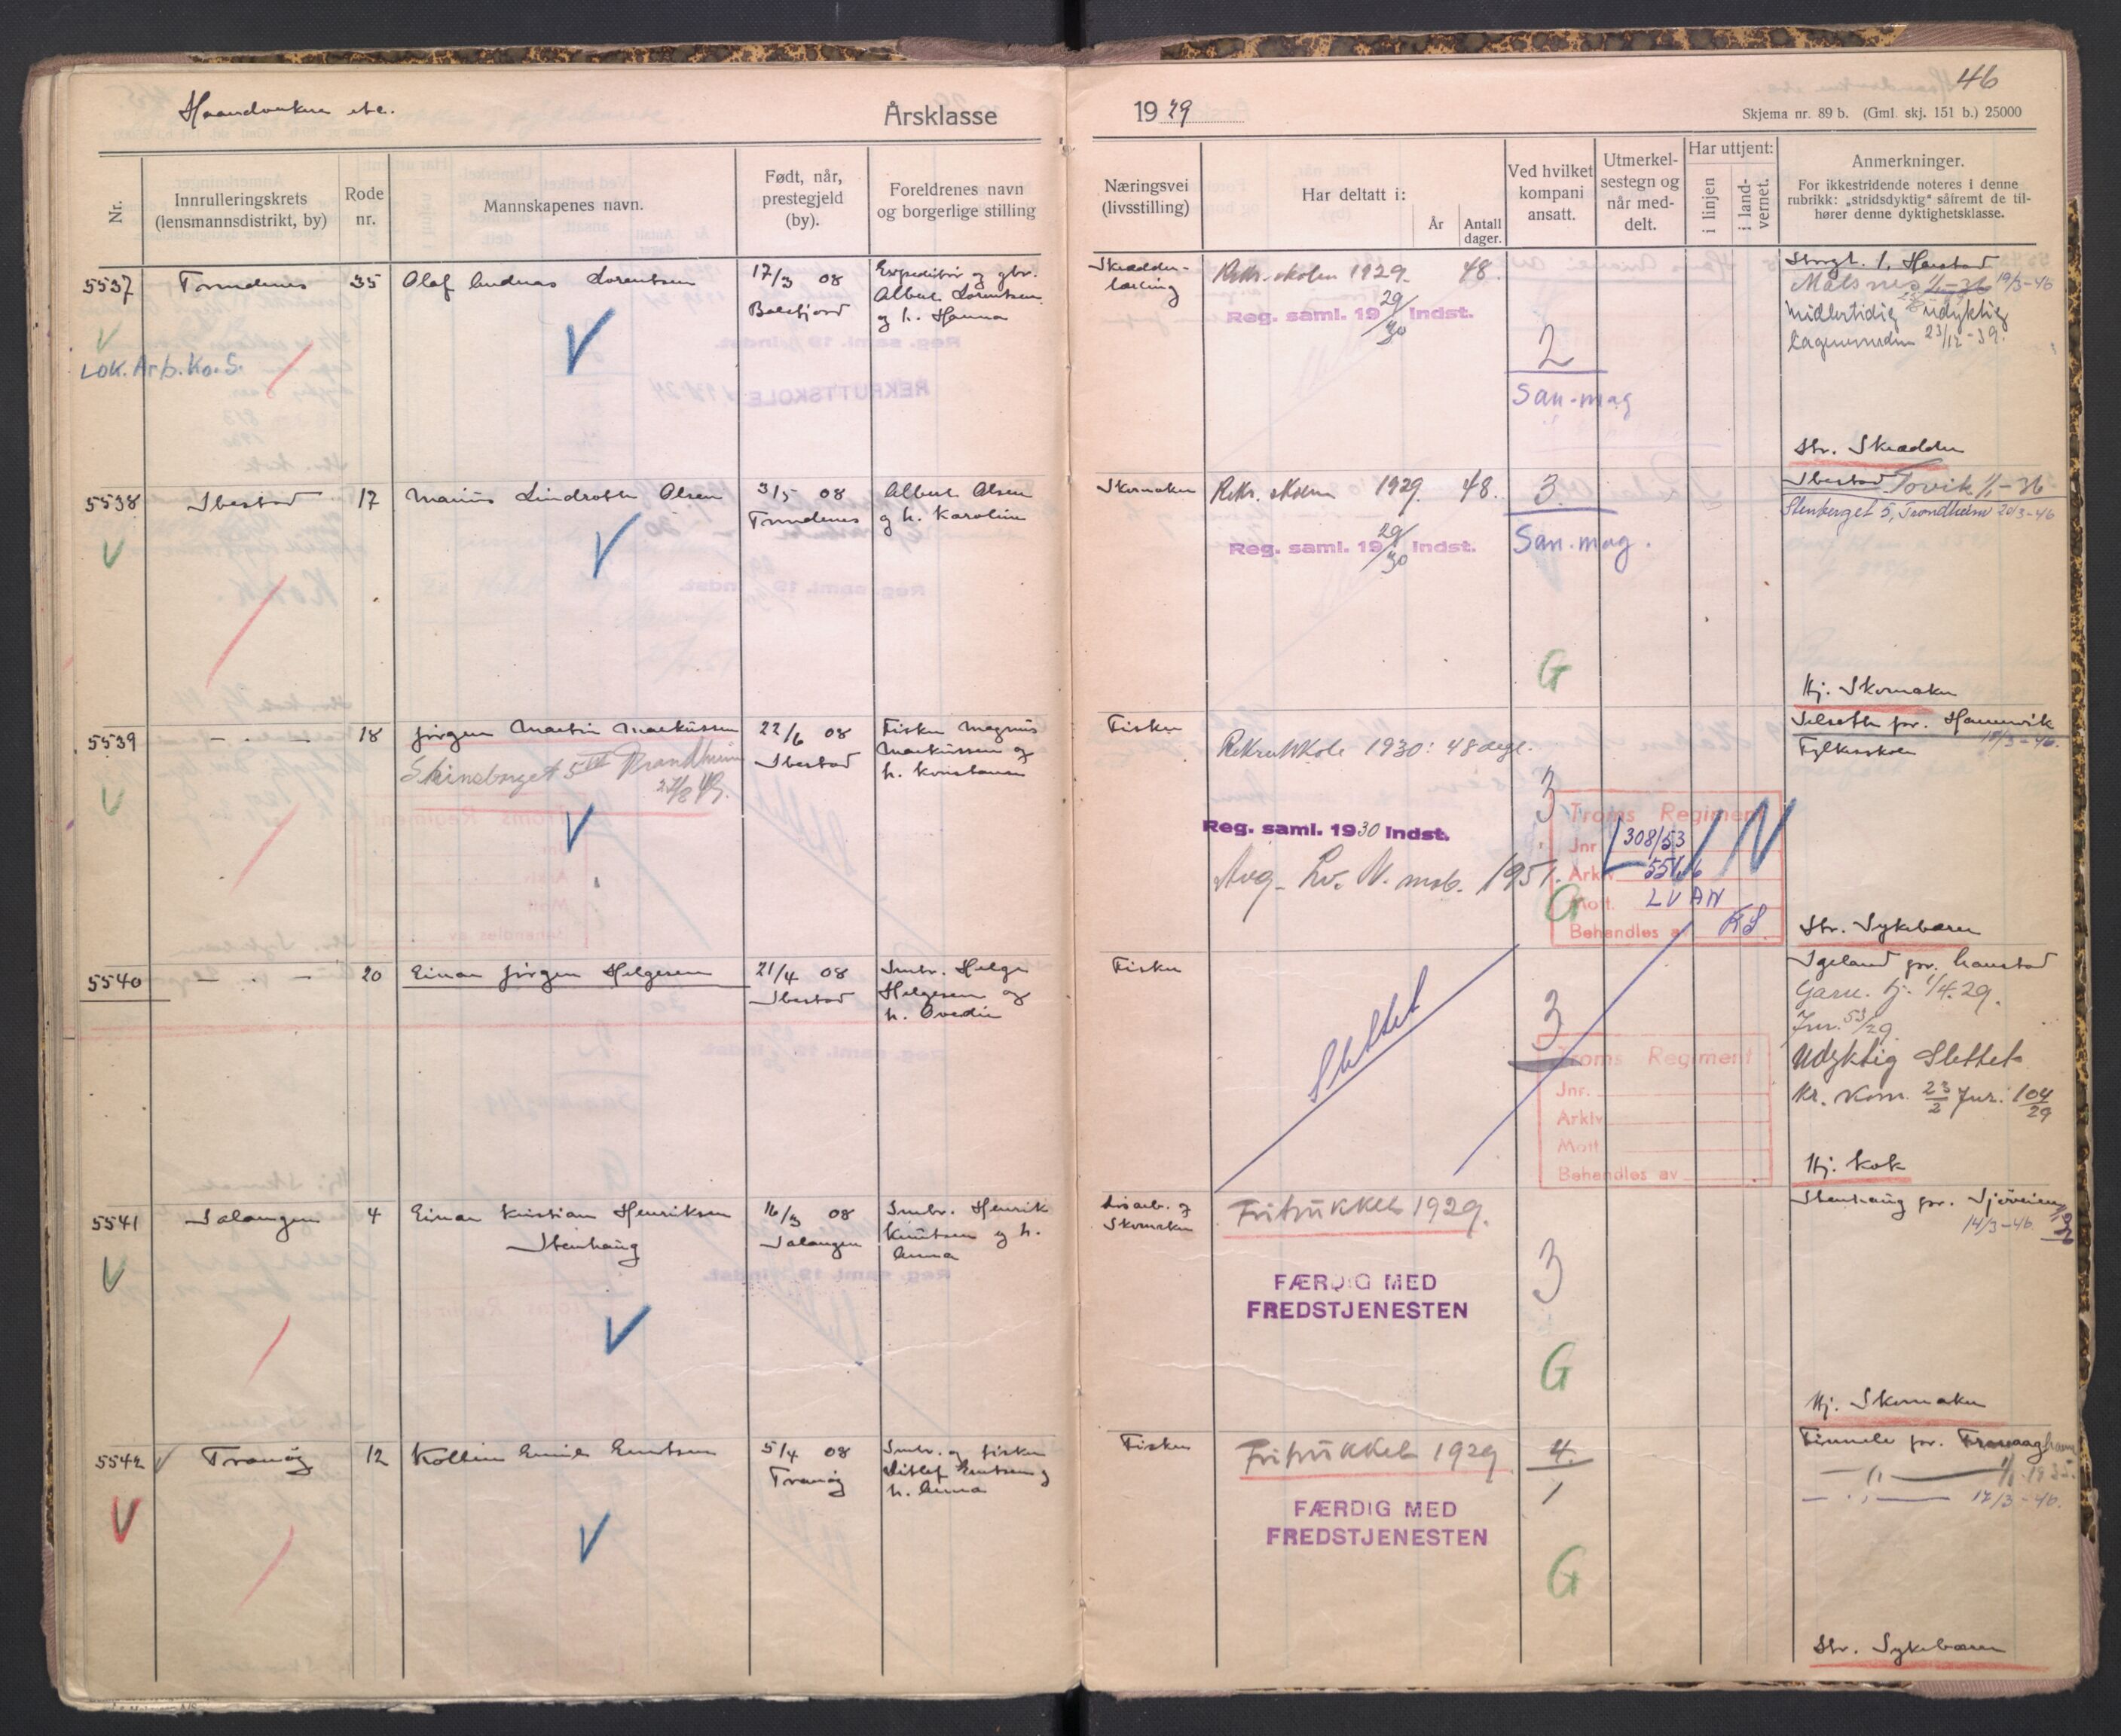 Haandverkere etc.
Årsklasse
1929
46
Skjema nr. 89 b. (Gml. skj. 151 b.) 25000
Nr.
Innrulleringskrets
(lensmannsdistrikt, by)
Rode
nr.
Mannskapenes navn.
Født, når,
prestegjeld
(by).
Foreldrenes navn
og borgerlige stilling
Næringsvei
(livsstilling)
Har deltatt i:
År
Antall
dager.
Ved hvilket
kompani
ansatt.
Utmerkel-
sestegn og
når med-
delt.
Har uttjent:
i linjen
i land-
vernet.
Anmerkninger.
For ikkestridende noteres i denne
rubrikk: „stridsdyktig" såfremt de til-
hører denne dyktighetsklasse.
5537
Trondenes
35
Olaf Andreas Lorentsen
17/3 08
Balsfjord
Expeditør og gbr.
Albert Lorentsen
og h. Hanna
LOK. Arb. Ko. S.
Skrædder-
lærling
Rekr.skolen 1929. 48.
Reg. saml. 19 29/30 Indst.
2
San-mag
Storgt. 1, Harstad
Målsnes 1/1-36 19/3-46
Midlertidig udyktig
23/12-39.
Str. Skrædder
5538
Ibestad
17
Marius Lindroth Olsen
3/5 08
Trondenes
Albert Olsen
og h. Karoline
Skomaker
Rekr. skolen 1929. 48.
Reg. saml. 19 29/30 Indst.
3.
San.mag.
G
Ibestad Tovik 1/1-36
Stenberget 5, Trondheim 20/3-46
Hj. Skomaker
5539
— . —
18
Jørgen Martin Markussen
22/6 08
Ibestad
Fisker Magnus
Markussen og
h. Konstanse
Fisker
Rekruttskole 1930: 48 dage.
Reg. saml. 1930 Indst.
Avg. Lv. N. mob. 1951.
3
G
Troms Regiment
Jnr. 308/53
Arkiv
Mott. LVAN
Behandles av
Selseth pr. Hamnvik
18/3-46.
Fylkesskole
Str. Sykebærer
5540
— . —
20
Einar Jørgen Helgesen
21/4 08
Ibestad
Smbr. Helge
Helgesen og
h. Ovedie
Fisker
Slettet
3
Troms Regiment
Jnr.
Arkiv
Mott
Behandles av
Igeland pr. Harstad
Garn. tj. 1/4.29.
Jnr. 53/29
Udyktig Slettet
Kr. Kom. 23/2 Jnr: 104/29
Hj. Kok
5541
Salangen
4
Einar Kristian Henriksen
Stenhaug
16/3 08
Salangen
Smbr. Henrik
Knutsen og h.
Anna
Skomaker
Fritrukket 1929.
FÆRDIG MED
FREDSTJENESTEN
3
G
Stenhaug pr. Sjøveien
14/3-46
Hj. Skomaker
5542
Tranøy
12
5/4 08
Tranøy
Smbr. og fisker
Ditlef Enutsen og
h. Anna
Fisker
Fritrukket 1929
FÆRDIG MED
FREDSTJENESTEN
4.
1
G
1/1 1935.
17/3-46.
Str. Sykebærer